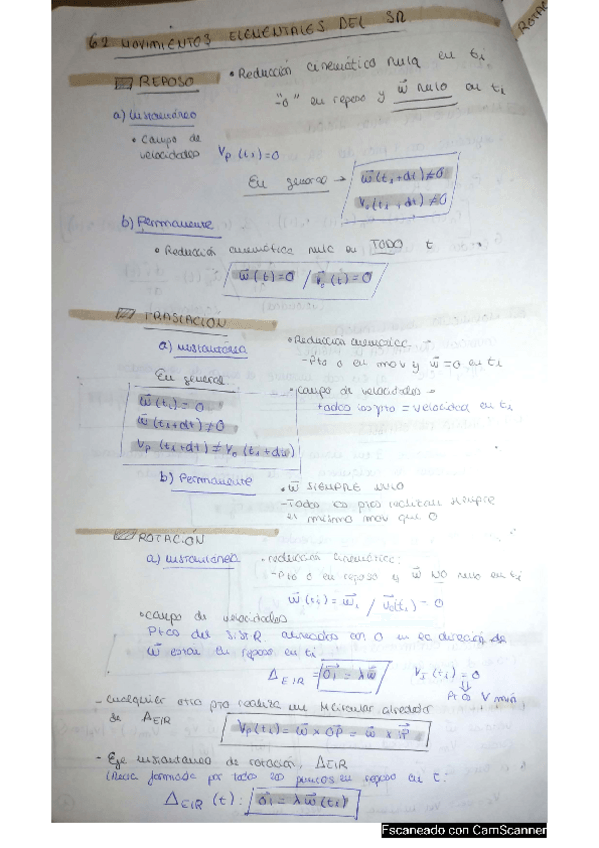 6.2 MOVIMIENTOS ELEMENTALES DEL SR
ROTAC
REPOSO
• Reducción cinemática nula en ti
"O" en reposo y w⃗ nulo en ti
a) Instantáneo
• Campo de velocidades Vp (ti) = 0
En general → w⃗(ti+dt) ≠ 0
Vo(ti+dt) ≠ 0
b) Permanente
• Reducción cinemática nula en TODO t
w⃗(t) = 0 / v⃗o(t) = 0
TRASLACIÓN
a) Instantánea
• Reducción cinemática →
- Pto O en mov y w⃗ = 0 en ti
En general
• Campo de velocidades →
todos los pto = velocidad en ti
w⃗(ti) = 0
w⃗(ti+dt) ≠ 0
Vp (ti+dt) ≠ Vo (ti+dt)
b) Permanente
• w⃗ SIEMPRE NULO
- Todos los ptos realizan siempre
el mismo mov que O
ROTACIÓN
a) Instantánea
• reducción cinemática:
- Pto O en reposo y w⃗ NO nulo en ti
w⃗(ti) = w⃗i / v⃗o(ti) = 0
• Campo de velocidades
Ptos del SISTR alineados con O en la dirección de
w⃗ estan en reposo en ti
Δ EIR = OI⃗ = λw⃗
VI (ti) = 0
Pto V min
- Cualquier otro pto realiza un M circular alrededor
de Δ EIR
Vp(ti) = w⃗ × OP⃗ = w⃗ × IP⃗
- Eje instantaneo de rotación, Δ EIR
(Recta formada por todos los puntos en reposo en t.
Δ EIR (t) : OI⃗ = λw⃗(ti)
Escaneado con CamScanner